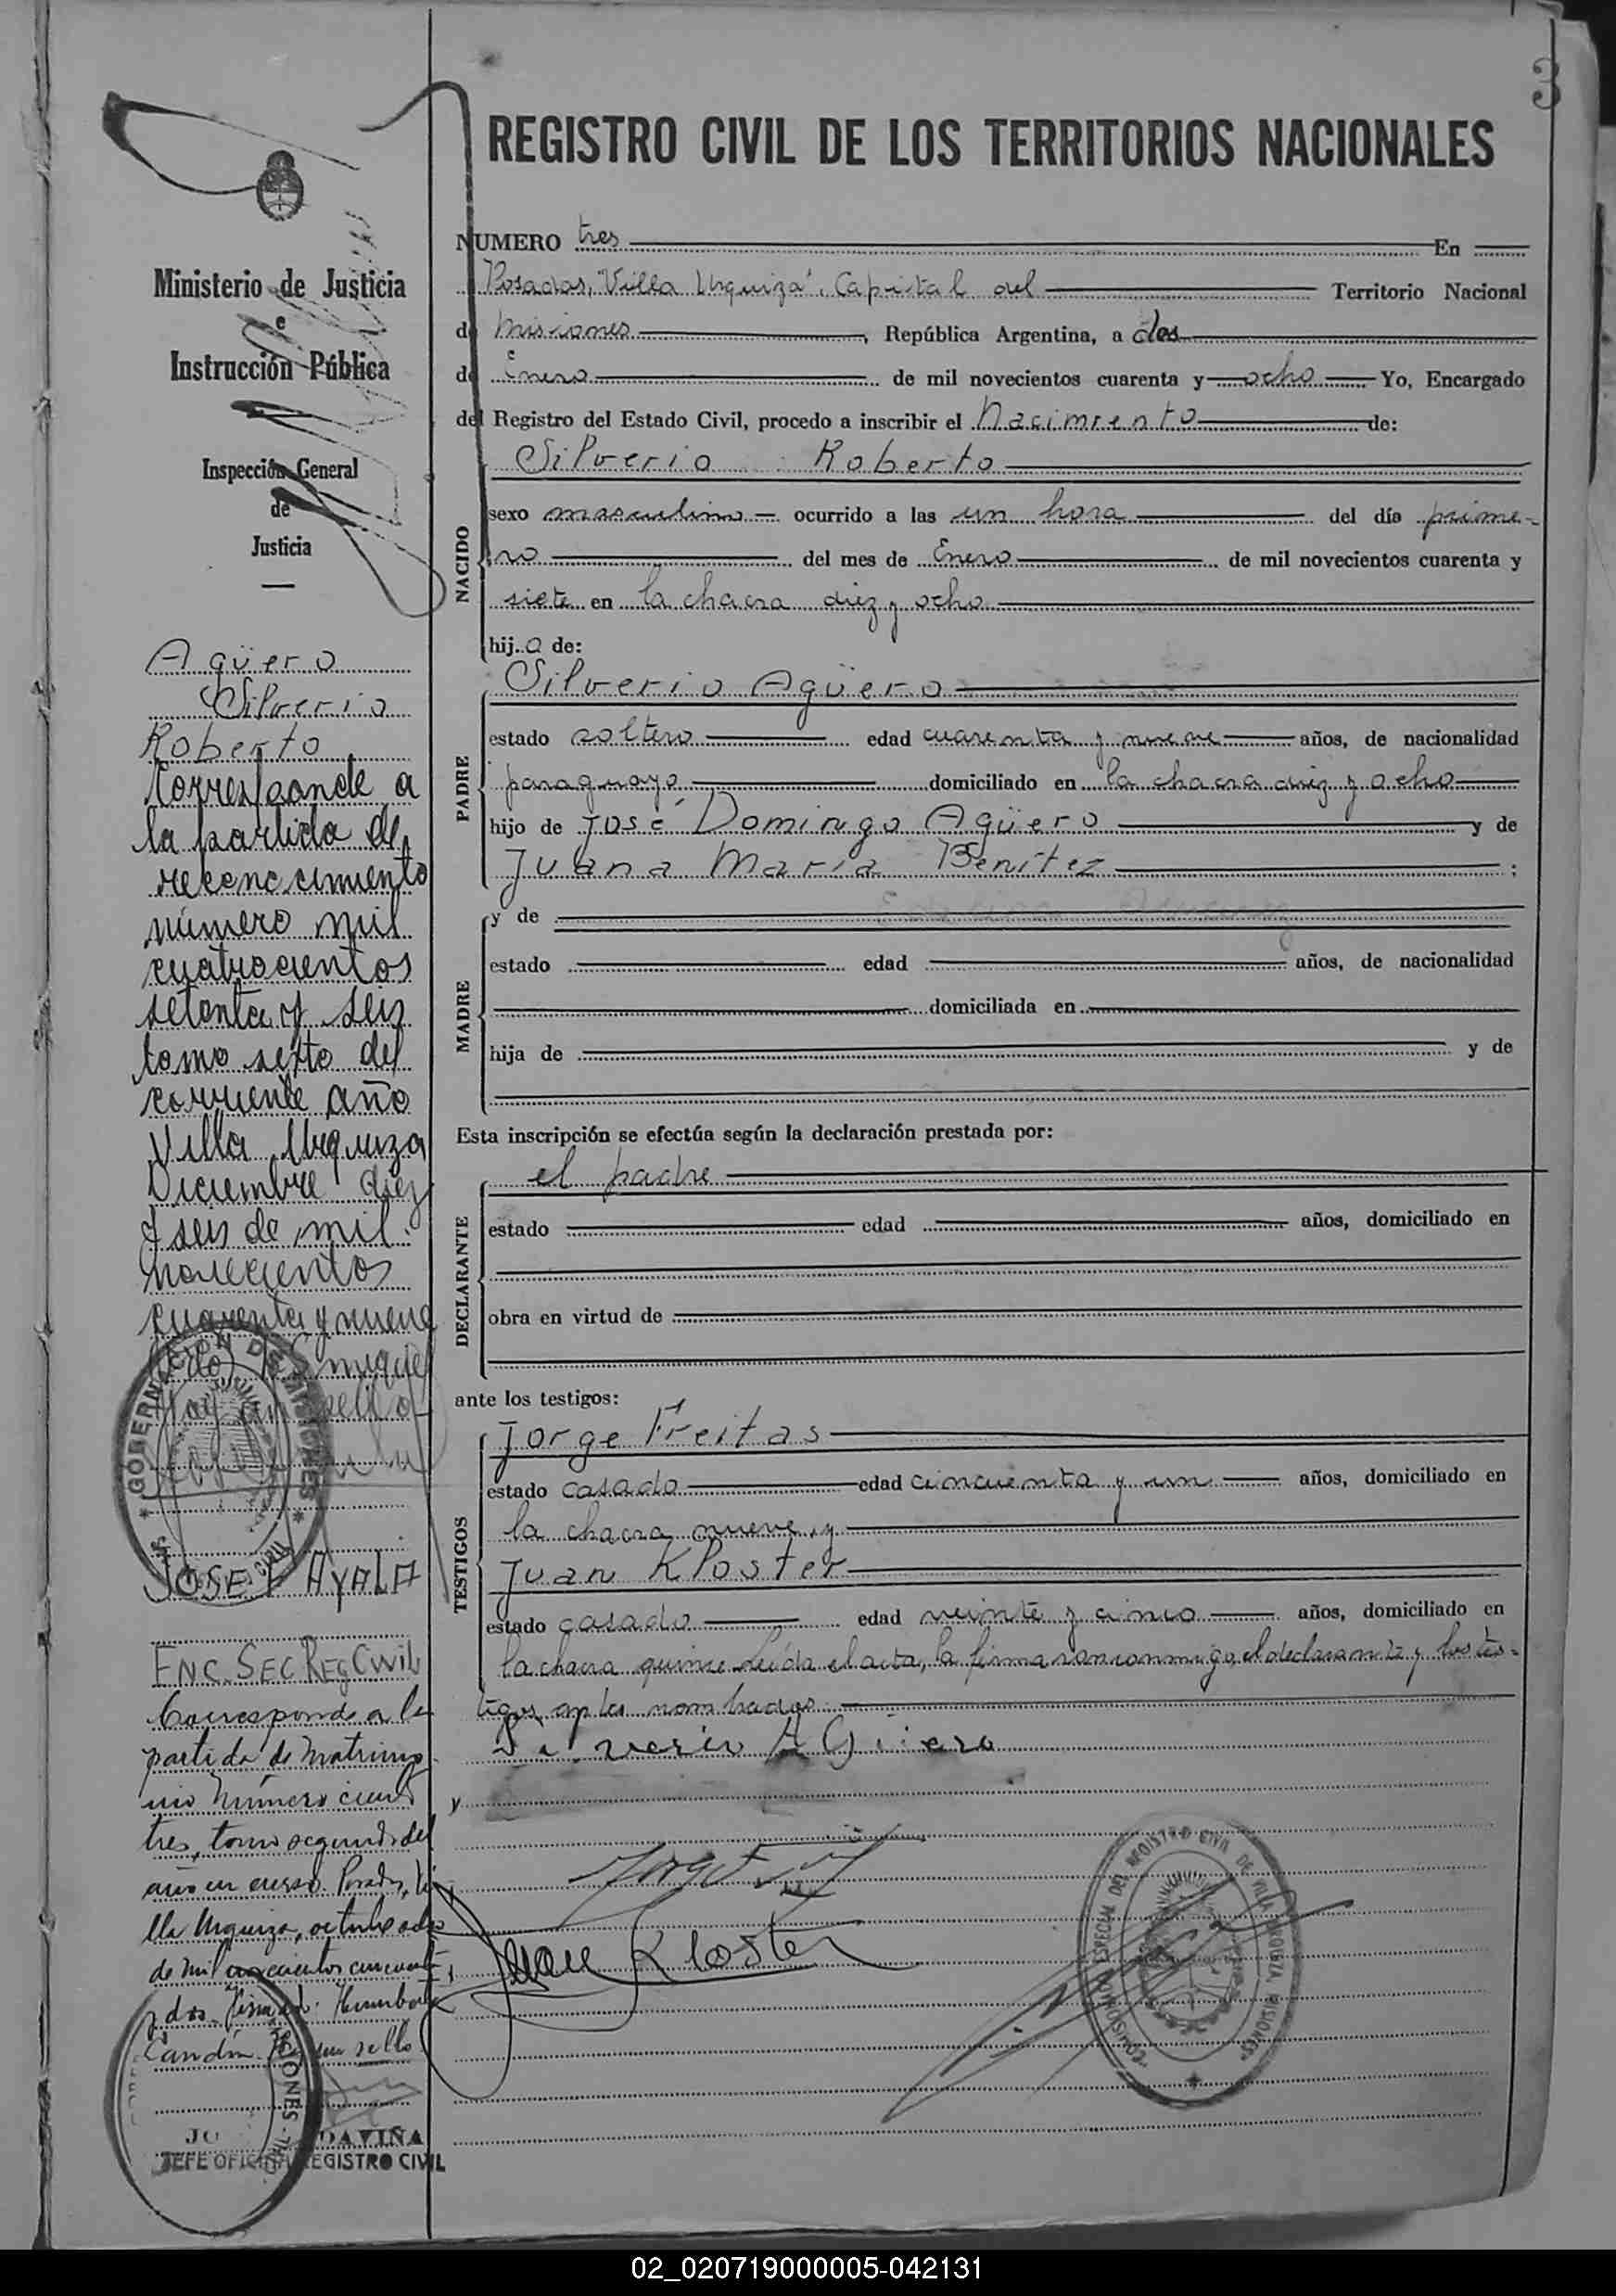 3
REGISTRO CIVIL DE LOS TERRITORIOS NACIONALES
NUMERO tres En
Posadas, "Villa Urquiza", Capital del Territorio Nacional
de Misiones, República Argentina, a dos
de Enero de mil novecientos cuarenta y ocho Yo, Encargado
del Registro del Estado Civil, procedo a inscribir el Nacimiento de:
NACIDO
Silverio Roberto
sexo masculino ocurrido a las un hora del día prime-
ro del mes de Enero de mil novecientos cuarenta y
siete en la chacra diez y ocho
hijo de:
PADRE
Silverio Agüero
estado soltero edad cuarenta y nueve años, de nacionalidad
paraguayo, domiciliado en la chacra diez y ocho
hijo de José Domingo Agüero y de
Juana María Benítez;
MADRE
y de
estado edad años, de nacionalidad
domiciliada en
hija de y de
Esta inscripción se efectúa según la declaración prestada por:
DECLARANTE
el padre
estado edad años, domiciliado en
obra en virtud de
ante los testigos:
TESTIGOS
Jorge Freitas
estado casado edad cincuenta y un años, domiciliado en
la chacra nueve, y
Juan Kloster
estado casado edad veinte y cinco años, domiciliado en
la chacra quince. Leída el acta, la firmaron conmigo, el declarante y los tes-
tigos antes nombrados.
Silverio Agüero
y
Juan Kloster
COMISION ESPECIAL DEL REGISTRO CIVIL DE VILLA URQUIZA MISIONES
Ministerio de Justicia
e
Instrucción Pública
Inspección General
de
Justicia
Agüero
Silverio
Roberto
Corresponde a
la partida de
reconocimiento
número mil
cuatrocientos
setenta y seis
tomo sexto del
corriente año
Villa Urquiza
Diciembre diez
y seis de mil
novecientos
cuarenta y nueve
Miguel
Hay un sello
GOBERNACION DE MISIONES
JOSE AYALA
ENC. SEC. REG. CIVIL
Corresponde a la
partida de Matrimo-
nio Número ciento
tres, tomo segundo del
año en curso. Posadas, Vi
lla Urquiza, octubre ocho
de mil novecientos cincuenta
y dos. Firmado: Humberto
Candín. Hay un sello
MISIONES
DAVIÑA
JEFE OFICINA REGISTRO CIVIL
02_020719000005-042131